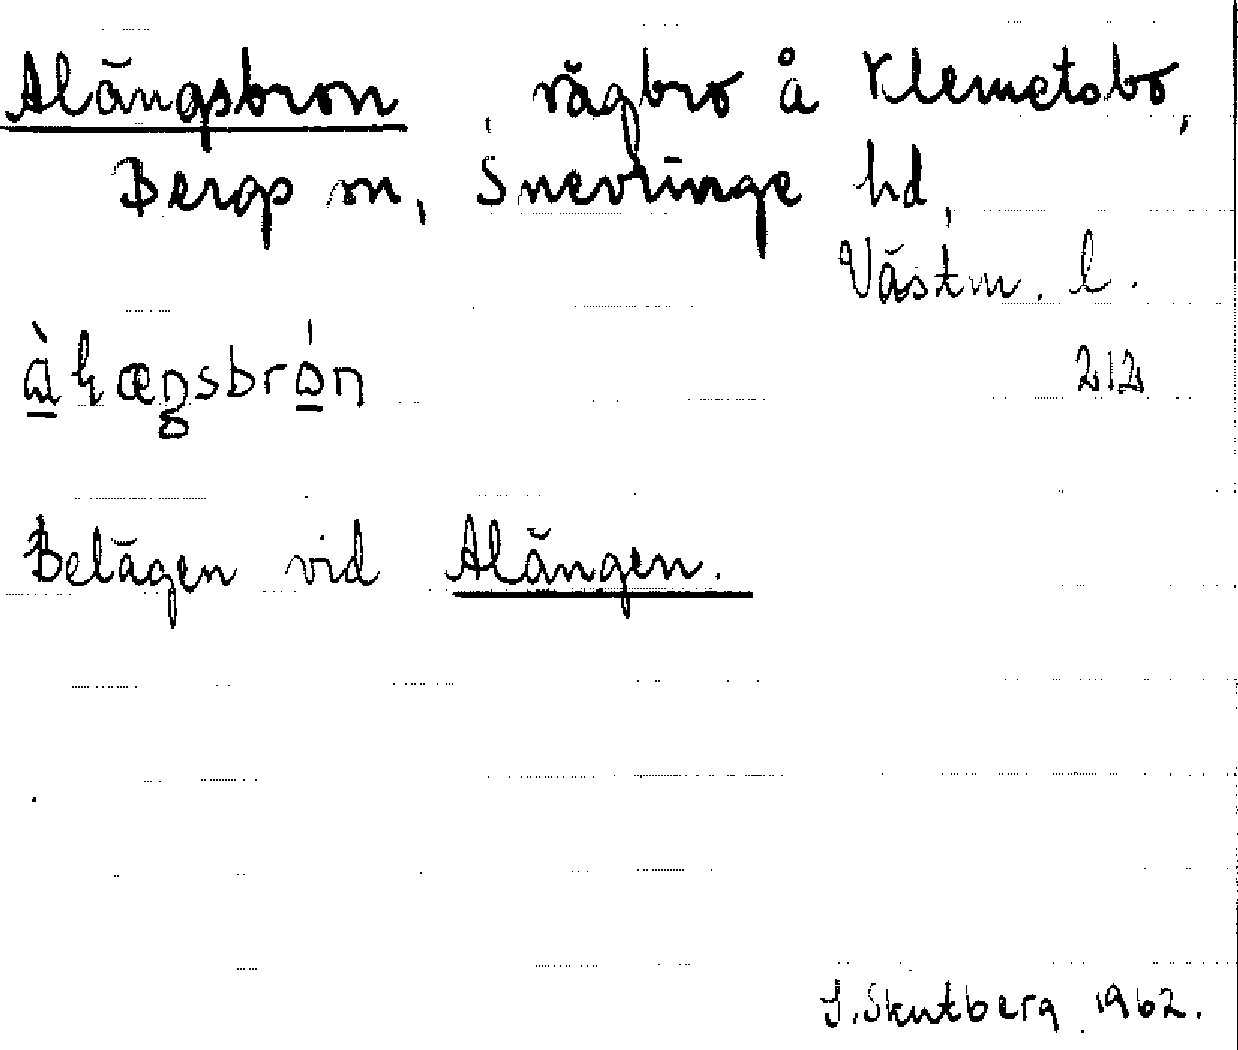 Alängsbron, vägbro å Klemetsbo,
Bergs sn, Snevringe hd,
Västm. l.
212
Belägen vid Alängen.
S. Skutberg 1962.